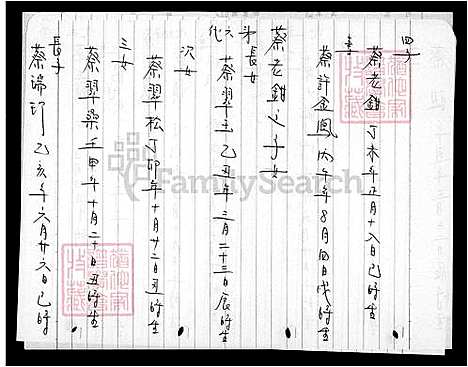 四子
蔡老鉗 丁未年正月十八日巳時生
妻
蔡許金鳳 丙午年8月四日戌時生
蔡老鉗之子女
第六代
長女
蔡翠玉 乙丑年三月二十三日辰時生
次女
蔡翠松 丁卯年十月廿二日丑時生
三女
蔡翠梁 壬申年十月二十日丑時生
長子
蔡瑞印 乙亥年六月廿六日巳時
FamilySearch